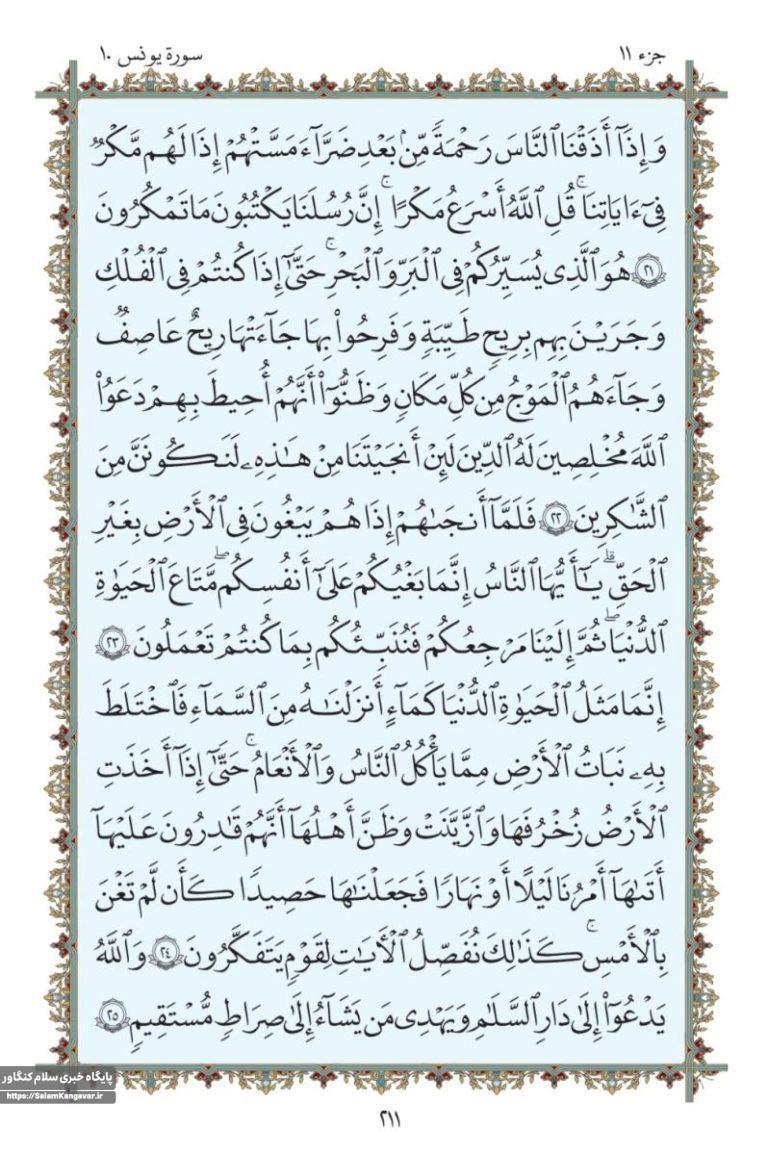 جزء ١١
سورة يونس ١٠
وَإِذَآ أَذَقْنَا ٱلنَّاسَ رَحْمَةً مِّنۢ بَعْدِ ضَرَّآءَ مَسَّتْهُمْ إِذَا لَهُم مَّكْرٌ
فِىٓ ءَايَاتِنَا ۚ قُلِ ٱللَّهُ أَسْرَعُ مَكْرًا ۚ إِنَّ رُسُلَنَا يَكْتُبُونَ مَا تَمْكُرُونَ
٢١ هُوَ ٱلَّذِى يُسَيِّرُكُمْ فِى ٱلْبَرِّ وَٱلْبَحْرِ ۚ حَتَّىٰٓ إِذَا كُنتُمْ فِى ٱلْفُلْكِ
وَجَرَيْنَ بِهِم بِرِيحٍ طَيِّبَةٍ وَفَرِحُوا۟ بِهَا جَآءَتْهَا رِيحٌ عَاصِفٌ
وَجَآءَهُمُ ٱلْمَوْجُ مِن كُلِّ مَكَانٍ وَظَنُّوٓا۟ أَنَّهُمْ أُحِيطَ بِهِمْ دَعَوُا۟
ٱللَّهَ مُخْلِصِينَ لَهُ ٱلدِّينَ لَئِنْ أَنجَيْتَنَا مِنْ هَـٰذِهِۦ لَنَكُونَنَّ مِنَ
ٱلشَّـٰكِرِينَ ٢٢ فَلَمَّآ أَنجَىٰهُمْ إِذَا هُمْ يَبْغُونَ فِى ٱلْأَرْضِ بِغَيْرِ
ٱلْحَقِّ ۗ يَـٰٓأَيُّهَا ٱلنَّاسُ إِنَّمَا بَغْيُكُمْ عَلَىٰٓ أَنفُسِكُم ۖ مَّتَاعَ ٱلْحَيَوٰةِ
ٱلدُّنْيَا ۖ ثُمَّ إِلَيْنَا مَرْجِعُكُمْ فَنُنَبِّئُكُم بِمَا كُنتُمْ تَعْمَلُونَ ٢٣
إِنَّمَا مَثَلُ ٱلْحَيَوٰةِ ٱلدُّنْيَا كَمَآءٍ أَنزَلْنَـٰهُ مِنَ ٱلسَّمَآءِ فَٱخْتَلَطَ
بِهِۦ نَبَاتُ ٱلْأَرْضِ مِمَّا يَأْكُلُ ٱلنَّاسُ وَٱلْأَنْعَامُ ۚ حَتَّىٰٓ إِذَآ أَخَذَتِ
ٱلْأَرْضُ زُخْرُفَهَا وَٱزَّيَّنَتْ وَظَنَّ أَهْلُهَآ أَنَّهُمْ قَـٰدِرُونَ عَلَيْهَآ
أَتَىٰهَآ أَمْرُنَا لَيْلًا أَوْ نَهَارًا فَجَعَلْنَـٰهَا حَصِيدًا كَأَن لَّمْ تَغْنَ
بِٱلْأَمْسِ ۚ كَذَٰلِكَ نُفَصِّلُ ٱلْأَيَـٰتِ لِقَوْمٍ يَتَفَكَّرُونَ ٢٤ وَٱللَّهُ
يَدْعُوٓا۟ إِلَىٰ دَارِ ٱلسَّلَـٰمِ وَيَهْدِى مَن يَشَآءُ إِلَىٰ صِرَاطٍ مُّسْتَقِيمٍ ٢٥
پایگاه خبری سلام کنگاور
https://SalamKangavar.ir
٢١١